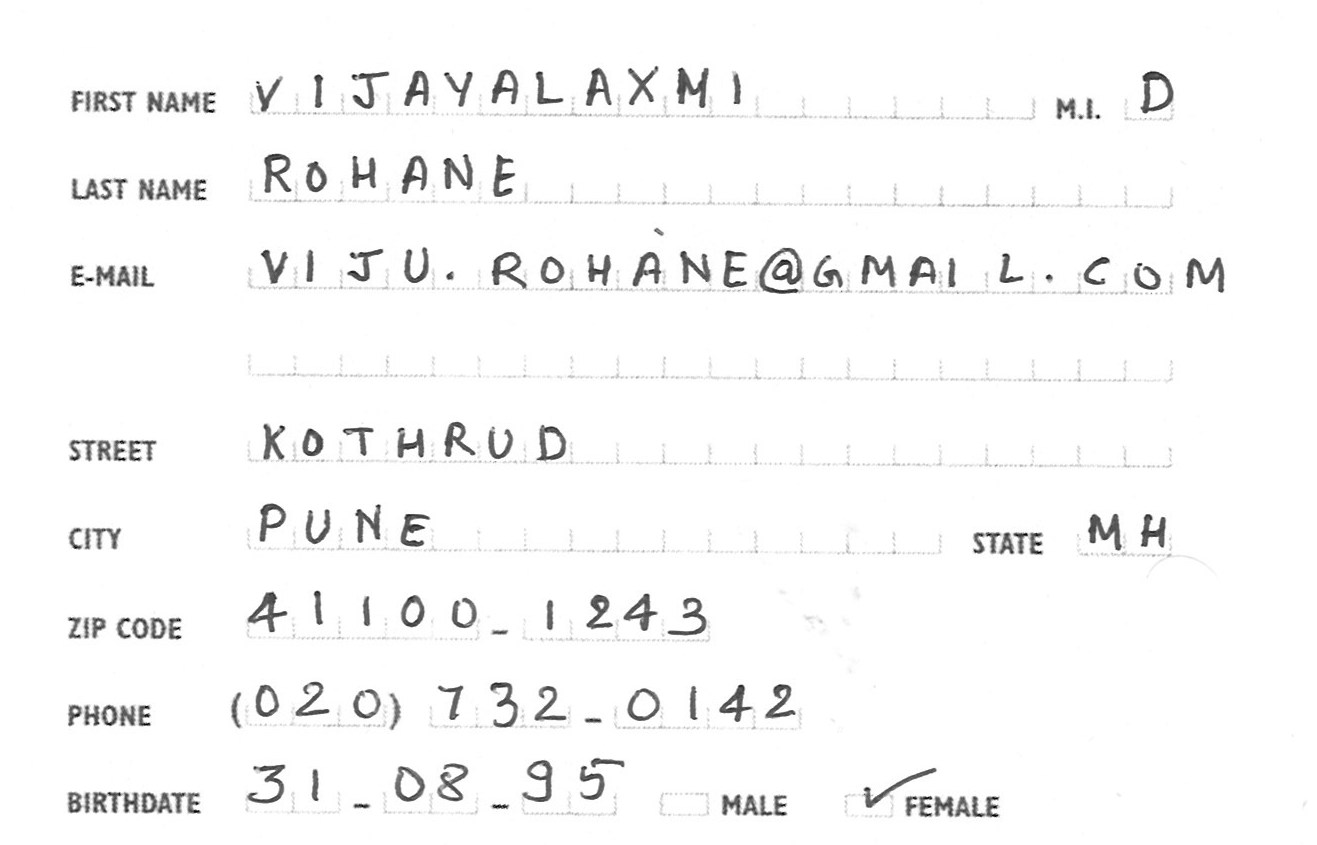 FIRST NAME VIJAYALAXMI M.I. D
LAST NAME ROHANE
E-MAIL VIJU.ROHANE@GMAIL.COM
STREET KOTHRUD
CITY PUNE STATE MH
ZIP CODE 41100-1243
PHONE (020) 732-0142
BIRTHDATE 31-08-95 MALE FEMALE